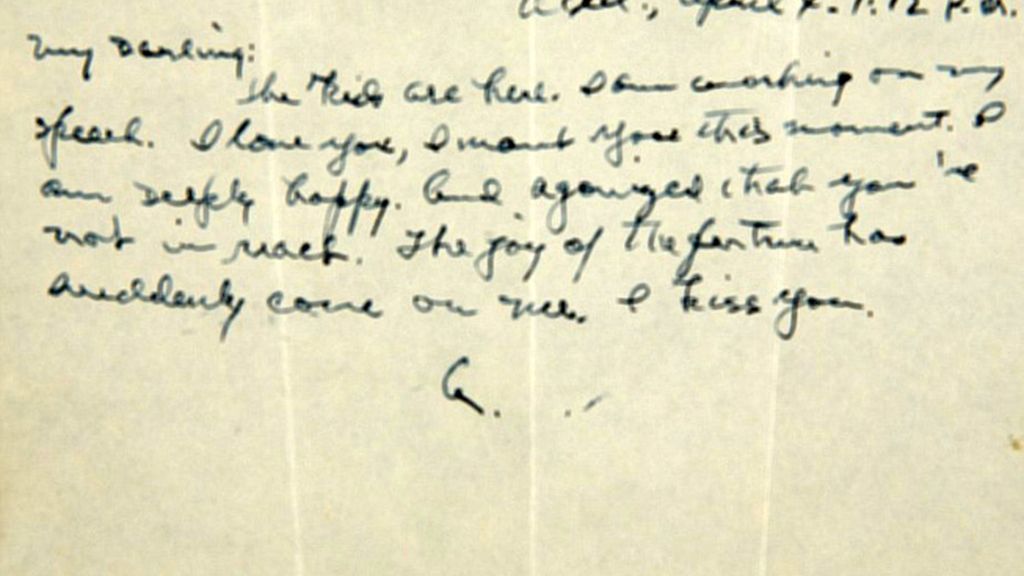 April 2. 1:12 P.M.
My Darling:
The kids are here. I am working on my
speech. I love you, I want you this moment. I
am deeply happy. And agonized that you're
not in reach. The joy of the fortune has
suddenly come on me. I kiss you.
A.